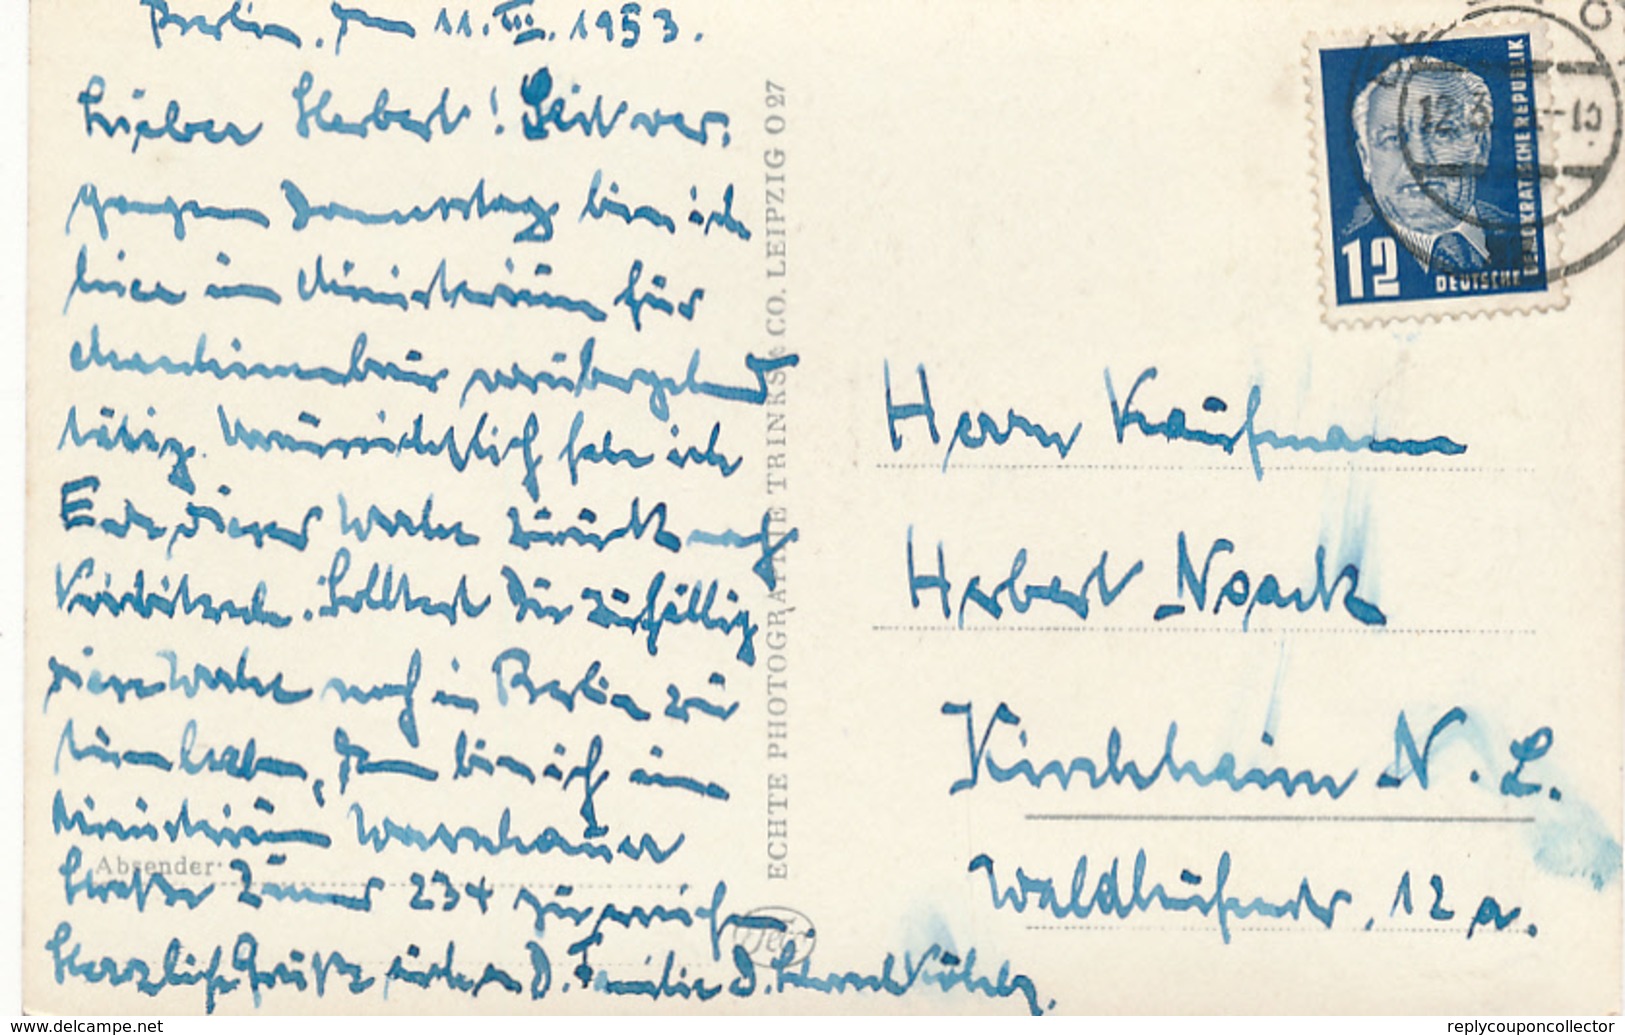 Berlin, den 11. III. 1953.
Lieber Herbert! Seit ver-
gangenen Donnerstag bin ich
hier im Ministerium für
Maschinenbau vorübergehend
tätig. Voraussichtlich fahre ich
Ende dieser Woche zurück nach
Solltest Du zufällig
diese Woche noch in Berlin zu
tun haben, dann bin ich im
Ministerium Warschauer
Straße Zimmer 234 zu erreichen.
Herzliche Grüße auch an D. Familie D.
Absender:
ECHTE PHOTOGRAPHIE TRINKS & CO. LEIPZIG O 27
12
DEUTSCHE DEMOKRATISCHE REPUBLIK
12.3
Herrn Kaufmann
Herbert Noack
Kirchhain N. L.
Waldhufenstr. 12 a.
www.delcampe.net
replycouponcollector